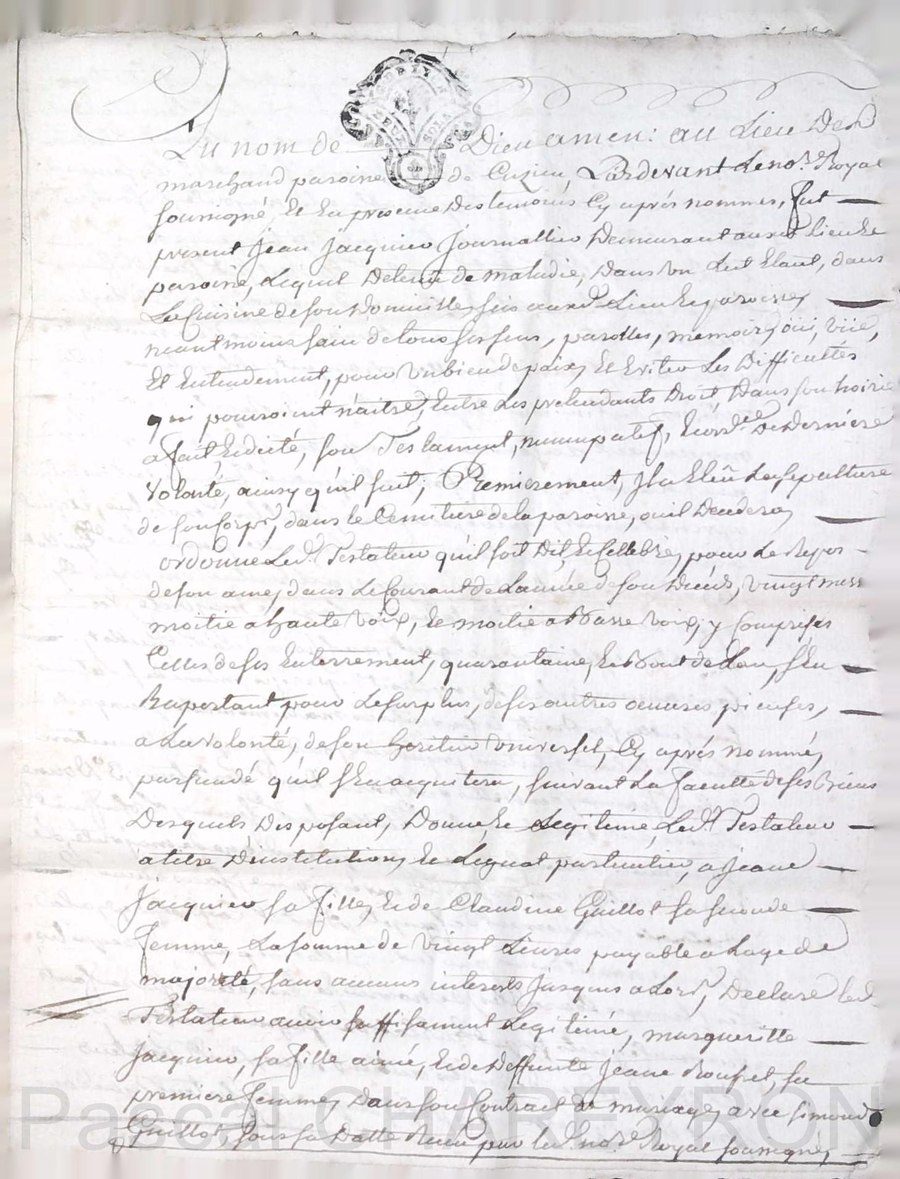 Au nom de Dieu amen: au Lieu De
marchand paroisse de Cuzieu Pardevant Le nore. Royal
soussigné, Et En presence Des temoins Cy après nommés, fut
present Jean Jacquier Journallier Demeurant aux.d Lieu Et
paroisse, Lequel Detenu de maladie, Dans un Lit Etant, dans
La Cuisine de son Domicille sis aux.d Lieu Et paroisse
neant moins sain de tous ses sens, parolles, memoire, oui, vüe,
Et Entendement, pour un bien de paix, Et Eviter Les Difficultés
qui pouroient naitre, Entre Les pretendants Droit Dans son hoirie
a fait Et dicté, son Testament, nuncupatif, Et ord.ce De Derniere
Volonté, ainsy qu'il suit; Premierement, Il a Elû La sepulture
de son Corps, dans le Cemitiere de la paroisse, ou il Decedera
ordonne Led.t Testateur qu'il soit Dit, Et Cellebré, pour Le Repos
de son ame, dans Le Courant de L'année de son Decés, vingt mess
moitie a haute Voix, Et moitié a Basse Voix, y Comprises
Celles de ses Enterrement, quarantaine, Et Bout de L'an, s'En
Raportant pour Le surplus, de ses autres oeuvres pieuses,
a La Volonté, de son heritier universel, Cy après nommé,
persuadé qu'il s'En acquitera, suivant La faculté de ses Biens
Desquels Disposant, Donne, Et Legitime Led.t Testateur
a titre D'institution, Et Leguat particulier, a Jeane
Jacquier sa fille, Et de Claudine Guillot sa seconde
femme, La somme de vingt Livres payable a L'age de
majorité, sans aucuns interests Jusques a Lors, Declare led
Testateur avoir suffisament Legitimé, margueritte
Jacquier, sa fille ainée, Et de Deffunte Jeane Rousset, sa
premiere femme, Dans son Contract de mariage, avec Simond
Guillot, sous sa Datte Reçu par led. no.re Royal soussigné
Pascal CHAREYRON